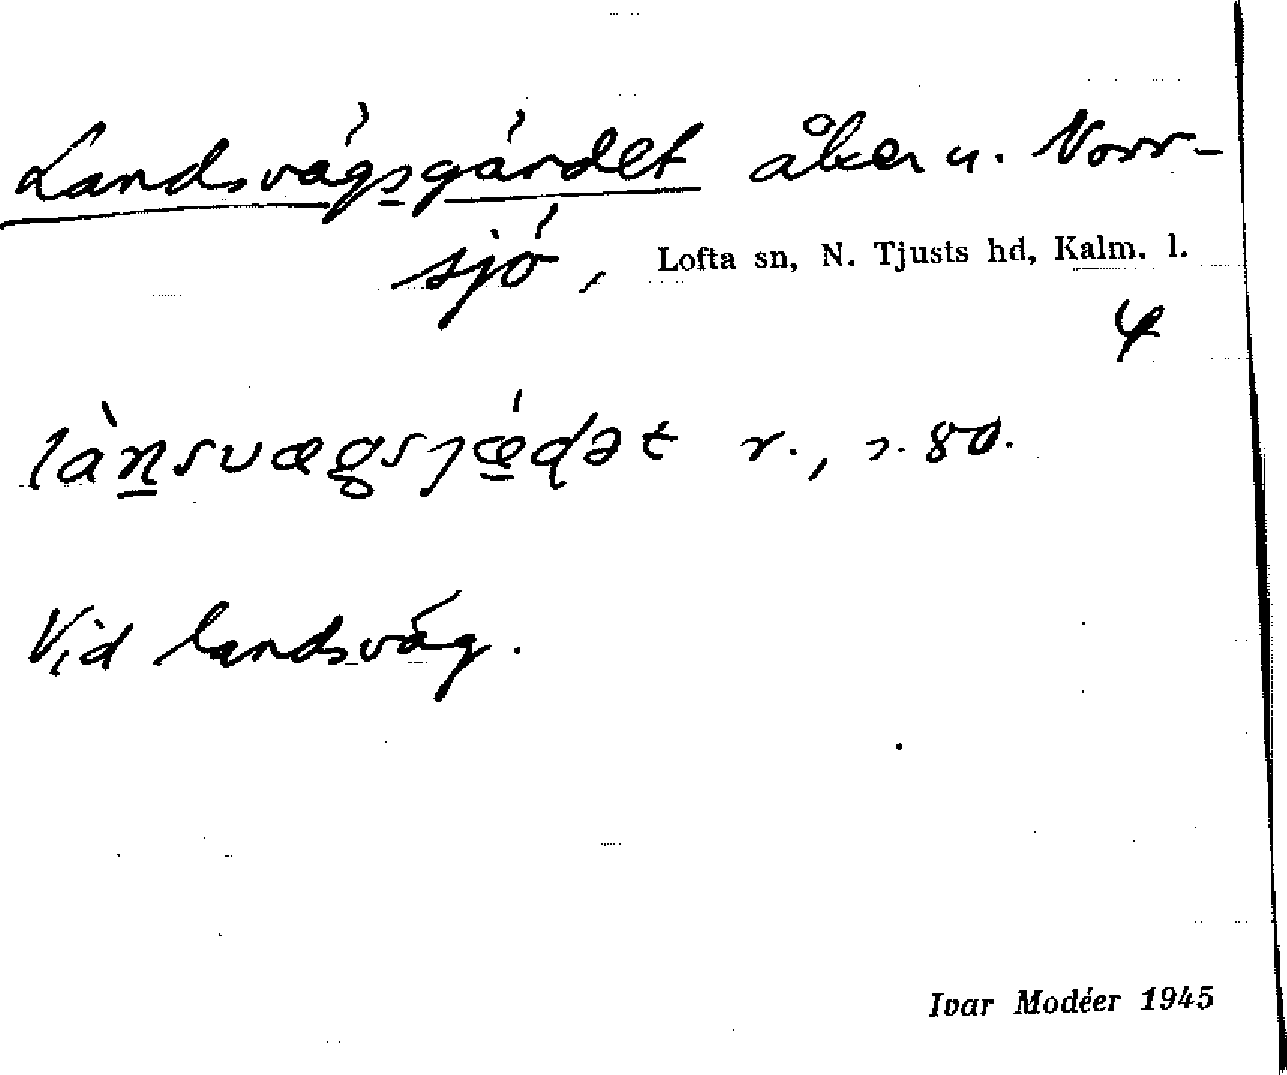 Landsvägsgärdet åker u. Norr-
sjö, Lofta sn, N. Tjusts hd, Kalm. l.
φ
lànsvægsjǽḍət r., s. 80.
Vid landsväg.
Ivar Modéer 1945